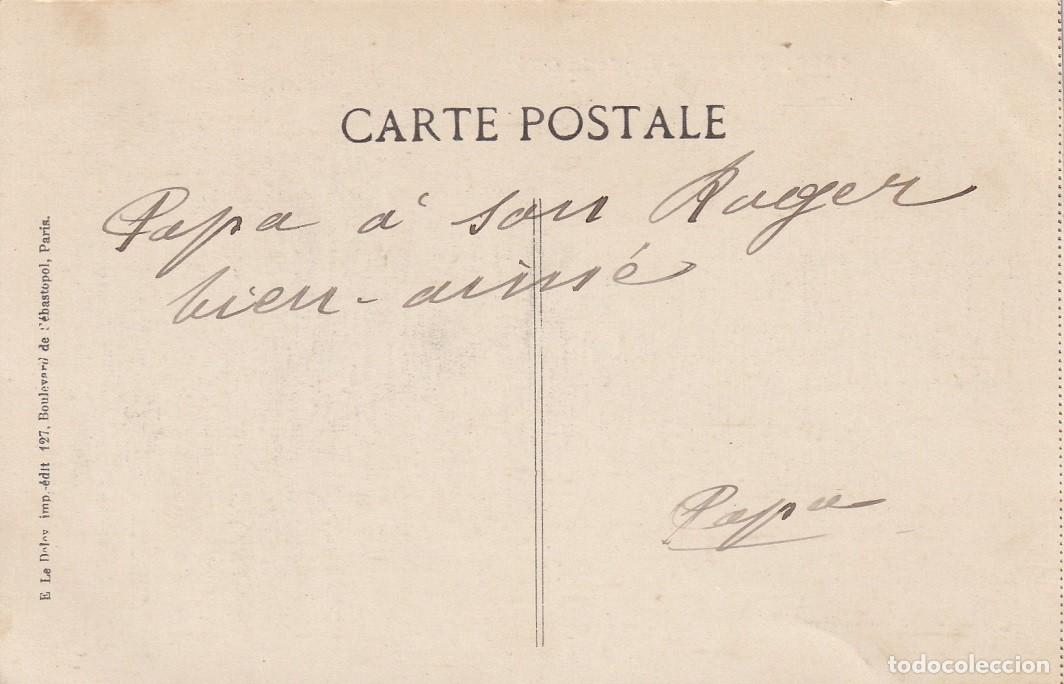 CARTE POSTALE
Papa à son Roger
bien-aimé
Papa
E Le Deley imp.-édit 127, Boulevard de Sébastopol, Paris.
todocoleccion